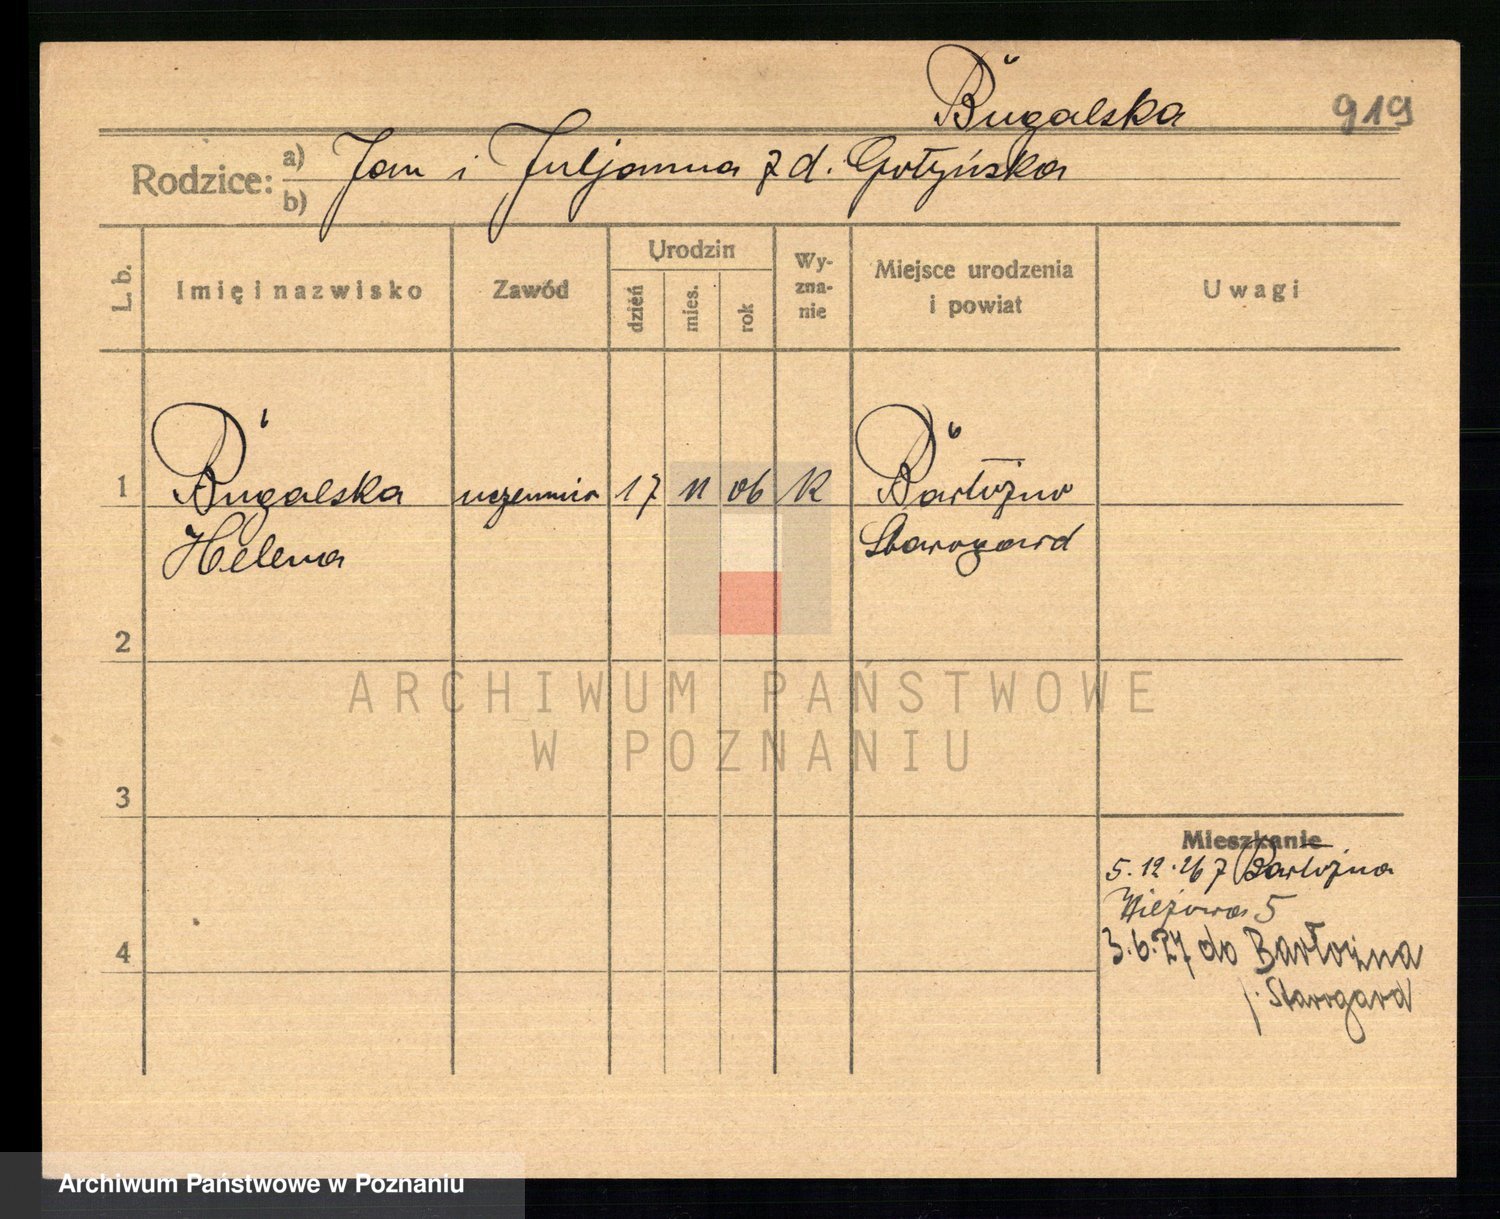 Bugalska 919
Rodzice: a) Jan i Juljanna z d. Gołyńska
b)
L. b. Imię i nazwisko Zawód Urodzin dzień mies. rok Wy-zna-nie Miejsce urodzenia i powiat Uwagi
1 Bugalska uczennica 17 11 06 K Bartożno
Helena Starogard
2
ARCHIWUM PAŃSTWOWE
W POZNANIU
3
Mieszkanie
5.12.26 z Bartożna
5
4 3.6.27 do Bartożna
p. Starogard
Archiwum Państwowe w Poznaniu